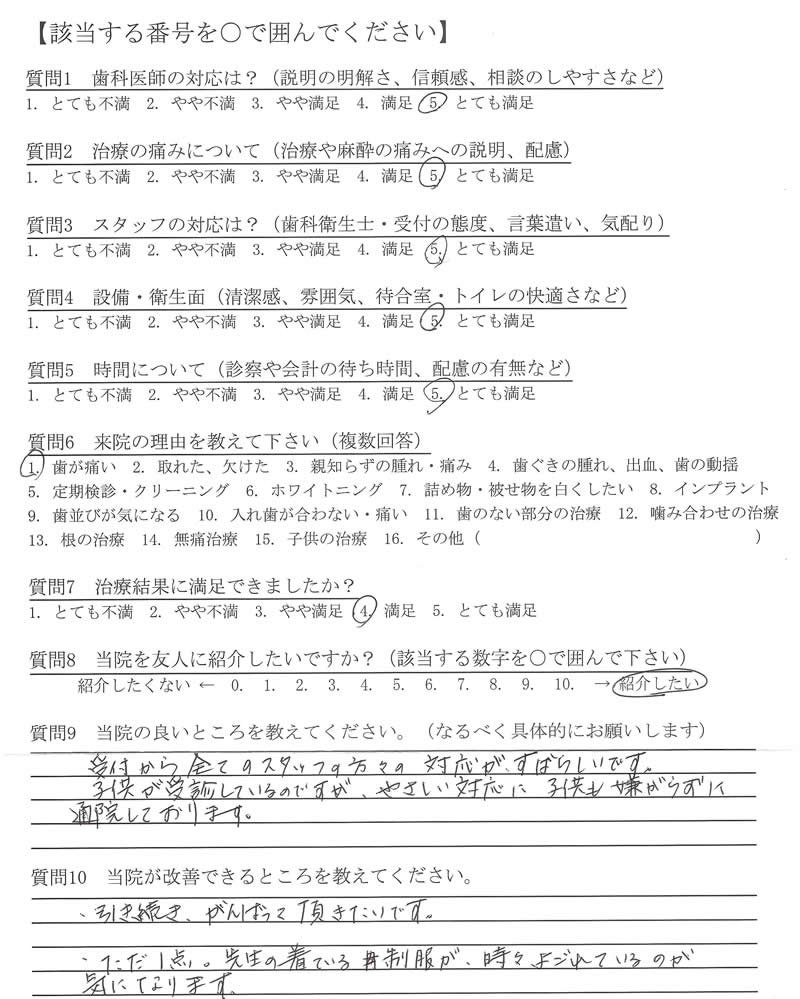 【該当する番号を〇で囲んでください】
質問1　歯科医師の対応は？（説明の明解さ、信頼感、相談のしやすさなど）
1. とても不満　2. やや不満　3. やや満足　4. 満足　5. とても満足
質問2　治療の痛みについて（治療や麻酔の痛みへの説明、配慮）
1. とても不満　2. やや不満　3. やや満足　4. 満足　5. とても満足
質問3　スタッフの対応は？（歯科衛生士・受付の態度、言葉遣い、気配り）
1. とても不満　2. やや不満　3. やや満足　4. 満足　5. とても満足
質問4　設備・衛生面（清潔感、雰囲気、待合室・トイレの快適さなど）
1. とても不満　2. やや不満　3. やや満足　4. 満足　5. とても満足
質問5　時間について（診察や会計の待ち時間、配慮の有無など）
1. とても不満　2. やや不満　3. やや満足　4. 満足　5. とても満足
質問6　来院の理由を教えて下さい（複数回答）
1. 歯が痛い　2. 取れた、欠けた　3. 親知らずの腫れ・痛み　4. 歯ぐきの腫れ、出血、歯の動揺
5. 定期検診・クリーニング　6. ホワイトニング　7. 詰め物・被せ物を白くしたい　8. インプラント
9. 歯並びが気になる　10. 入れ歯が合わない・痛い　11. 歯のない部分の治療　12. 噛み合わせの治療
13. 根の治療　14. 無痛治療　15. 子供の治療　16. その他（　　　）
質問7　治療結果に満足できましたか？
1. とても不満　2. やや不満　3. やや満足　4. 満足　5. とても満足
質問8　当院を友人に紹介したいですか？（該当する数字を〇で囲んで下さい）
紹介したくない ←　0.　1.　2.　3.　4.　5.　6.　7.　8.　9.　10.　→ 紹介したい
質問9　当院の良いところを教えてください。（なるべく具体的にお願いします）
受付から全てのスタッフの方々の対応が、すばらしいです。
子供が受診しているのですが、やさしい対応に子供も嫌がらずに
通院しております。
質問10　当院が改善できるところを教えてください。
・引き続き、がんばって頂きたいです。
・ただ1点。先生の着ている制服が、時々よごれているのが
気になります。